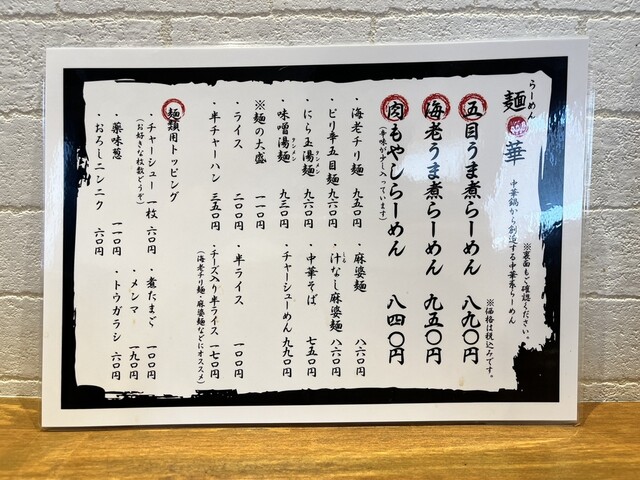 らーめん
麺華
中華鍋から創造する中華系らーめん
※裏面もご確認ください。
※価格は税込みです。
五目うま煮らーめん 八九〇円
海老うま煮らーめん 九五〇円
肉もやしらーめん 八四〇円
(辛味が少し入っています)
・海老チリ麺 九五〇円
・麻婆麺 八六〇円
・ピリ辛五目麺 九六〇円
・汁なし麻婆麺 八六〇円
・にら玉湯麺 九六〇円
・中華そば 七五〇円
・味噌湯麺 九三〇円
・チャーシューめん 九九〇円
※麺の大盛 一一〇円
・ライス 二〇〇円
・半ライス 一〇〇円
・半チャーハン 三五〇円
・チーズ入り半ライス 一七〇円
(海老チリ麺・麻婆麺などにオススメ)
麺類用トッピング
・チャーシュー 一枚 六〇円
(お好きな枚数どうぞ)
・煮たまご 一〇〇円
・メンマ 一九〇円
・薬味葱 一一〇円
・トウガラシ 六〇円
・おろしニンニク 六〇円